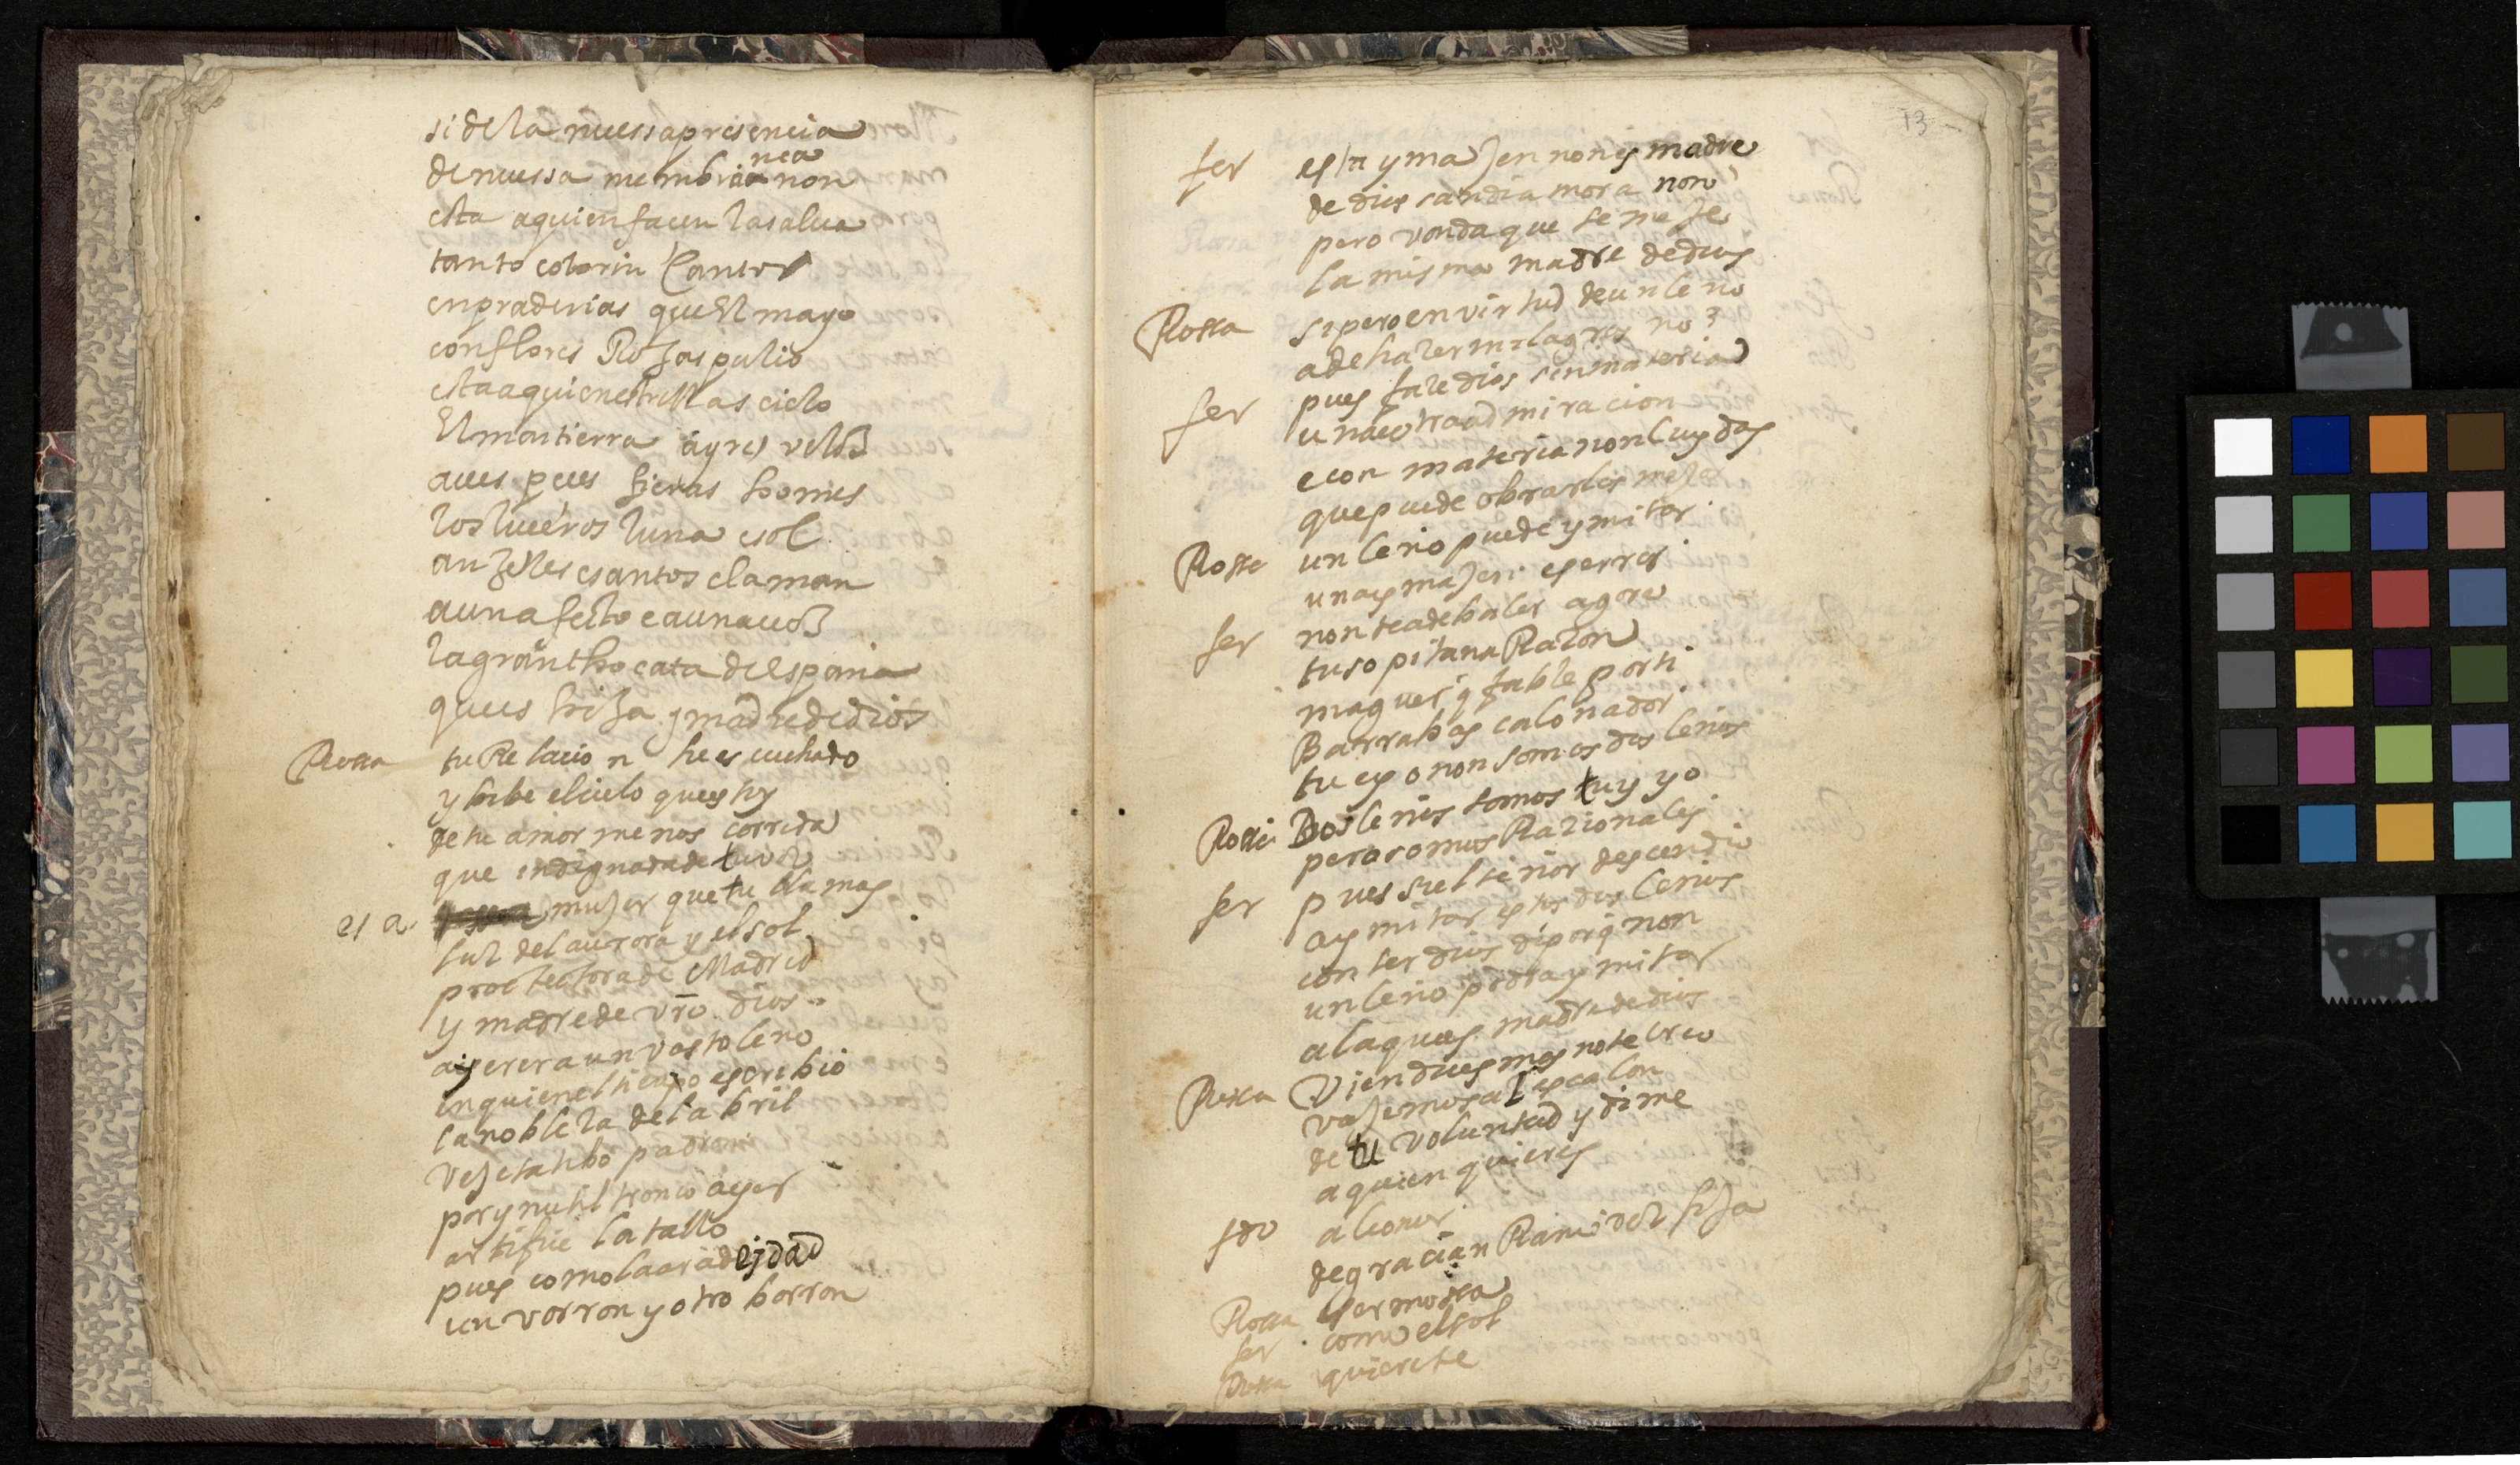 si de la nuessa presencia
de nuessa membrança non
esta a quien facen la salua
tanto colorin cantor
en praderias que El mayo
con flores Rosas pulio
esta a quien estrellas cielo
El mar tierra ayres veloz
aues peces fieras homes
los luceros luna e sol
anzeles e santos claman
a un afecto e a una uoz
la gran thocata de España
que es hija y madre de dios
Rossa tu Relacion he escuchado
y bibe el cielo que estoy
de tu amor menos corrida
que indignada de tu voz
esa mujer que tu llamas
luz del aurora y el sol
protectora de Madrid
y madre de vro dios
ayer era un vasto leño
en quien el tiempo escribio
la nobleza del abril
vejetatibo padron
por ynutil tronco ayer
artifice la tallo
pues como la ara deydad
un vorron y otro borron
13
fer esta ymajen non es madre
de dios sandia mora non
pero vonda que semeje
la misma madre de dios
Rossa si pero en virtud de un leño
a de hazer milagros no
fer pues faze dios sin materia
una e otra admiracion
e con materia non cuydas
que puede obrarles mejor
Rossa un leño puede ymitar
una ymajen es error
fer non te a de baler agora
tu sopitana Razon
maguer q fable por ti
Barrabas calonador
tu e yo non somos dos leños
Rossa Dos leños somos tu y yo
pero somos Razionales
fer pues si el señor descendio
a ymitar estos dos leños
con ser dios di porq non
un leño podra ymitar
a la que es madre de dios
Rossa Vien dices mas no te creo
vajemos al escalon
de tu voluntad y dime
a quien quieres
fer a leonor
de gracian Ramirez hija
Rossa es ermossa
fer como el sol
Rossa quierete